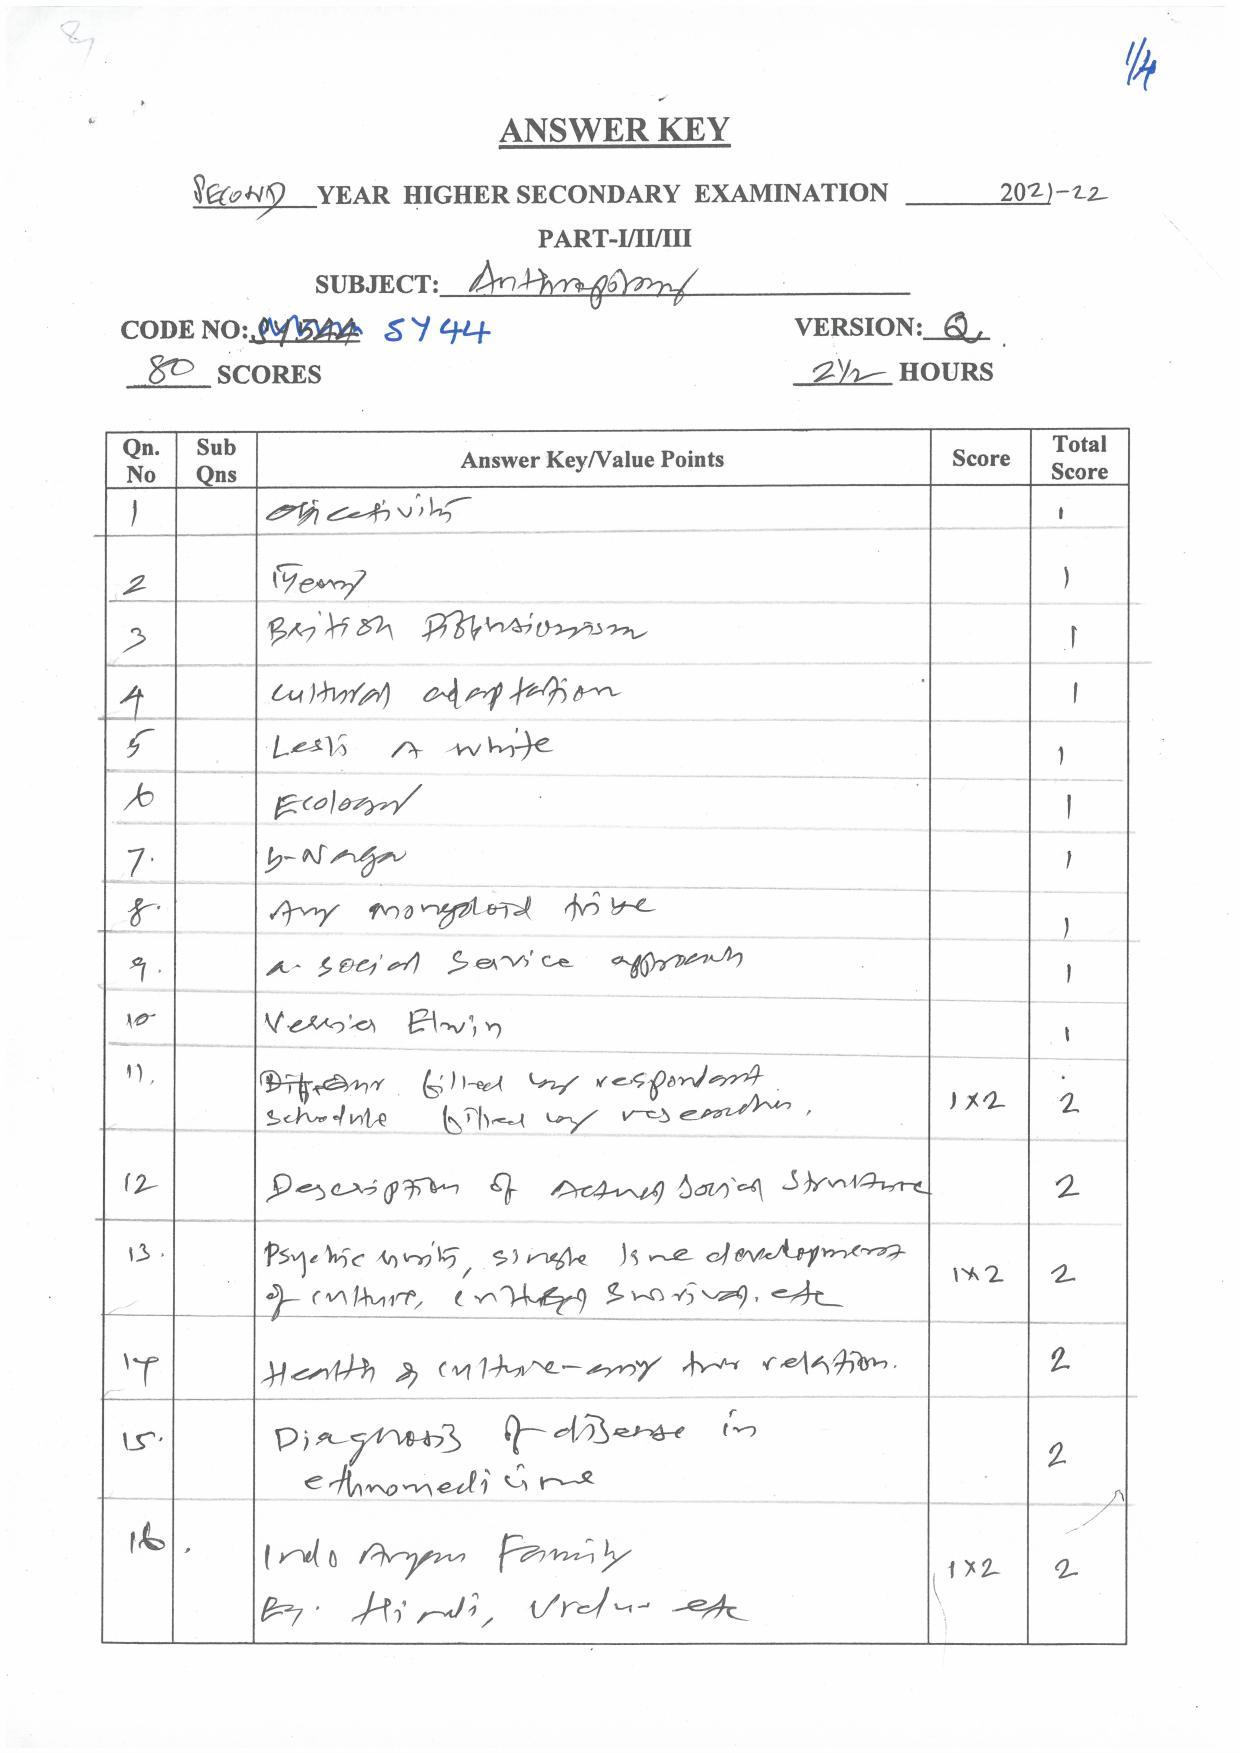 1/4
ANSWER KEY
SECOND YEAR HIGHER SECONDARY EXAMINATION 2021-22
PART-I/II/III
SUBJECT: Anthropology
CODE NO: SY44 VERSION: Q
80 SCORES 2½ HOURS
Qn. No Sub Qns Answer Key/Value Points Score Total Score
1 Objectivity 1
2 1
3 British Diffusionism 1
4 cultural adaptation 1
5 Lesli A white 1
6 Ecology 1
7. b-Naga 1
8. Any mongoloid tribe 1
9. a. social service approach 1
10 Verrier Elwin 1
11. filled by respondant
schedule filled by researcher. 1x2 2
12 Description of Actual social structure 2
13. Psychic unity, single line development
of culture, cultural survival. etc 1x2 2
14 Health & culture-any two relation. 2
15. Diagnosis of disease in
ethnomedicine 2
16. Indo Aryan Family
Eg. Hindi, Urdu etc 1x2 2